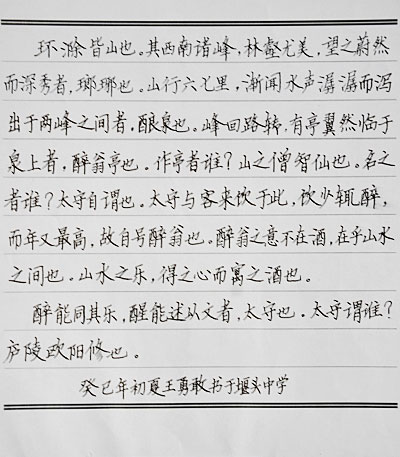 环滁皆山也。其西南诸峰，林壑尤美，望之蔚然
而深秀者，瑯琊也。山行六七里，渐闻水声潺潺而泻
出于两峰之间者，酿泉也。峰回路转，有亭翼然临于
泉上者，醉翁亭也。作亭者谁？山之僧智仙也。名之
者谁？太守自谓也。太守与客来饮于此，饮少辄醉，
而年又最高，故自号醉翁也。醉翁之意不在酒，在乎山水
之间也。山水之乐，得之心而寓之酒也。
醉能同其乐，醒能述以文者，太守也。太守谓谁？
庐陵欧阳修也。
癸巳年初夏王勇敢书于堰头中学